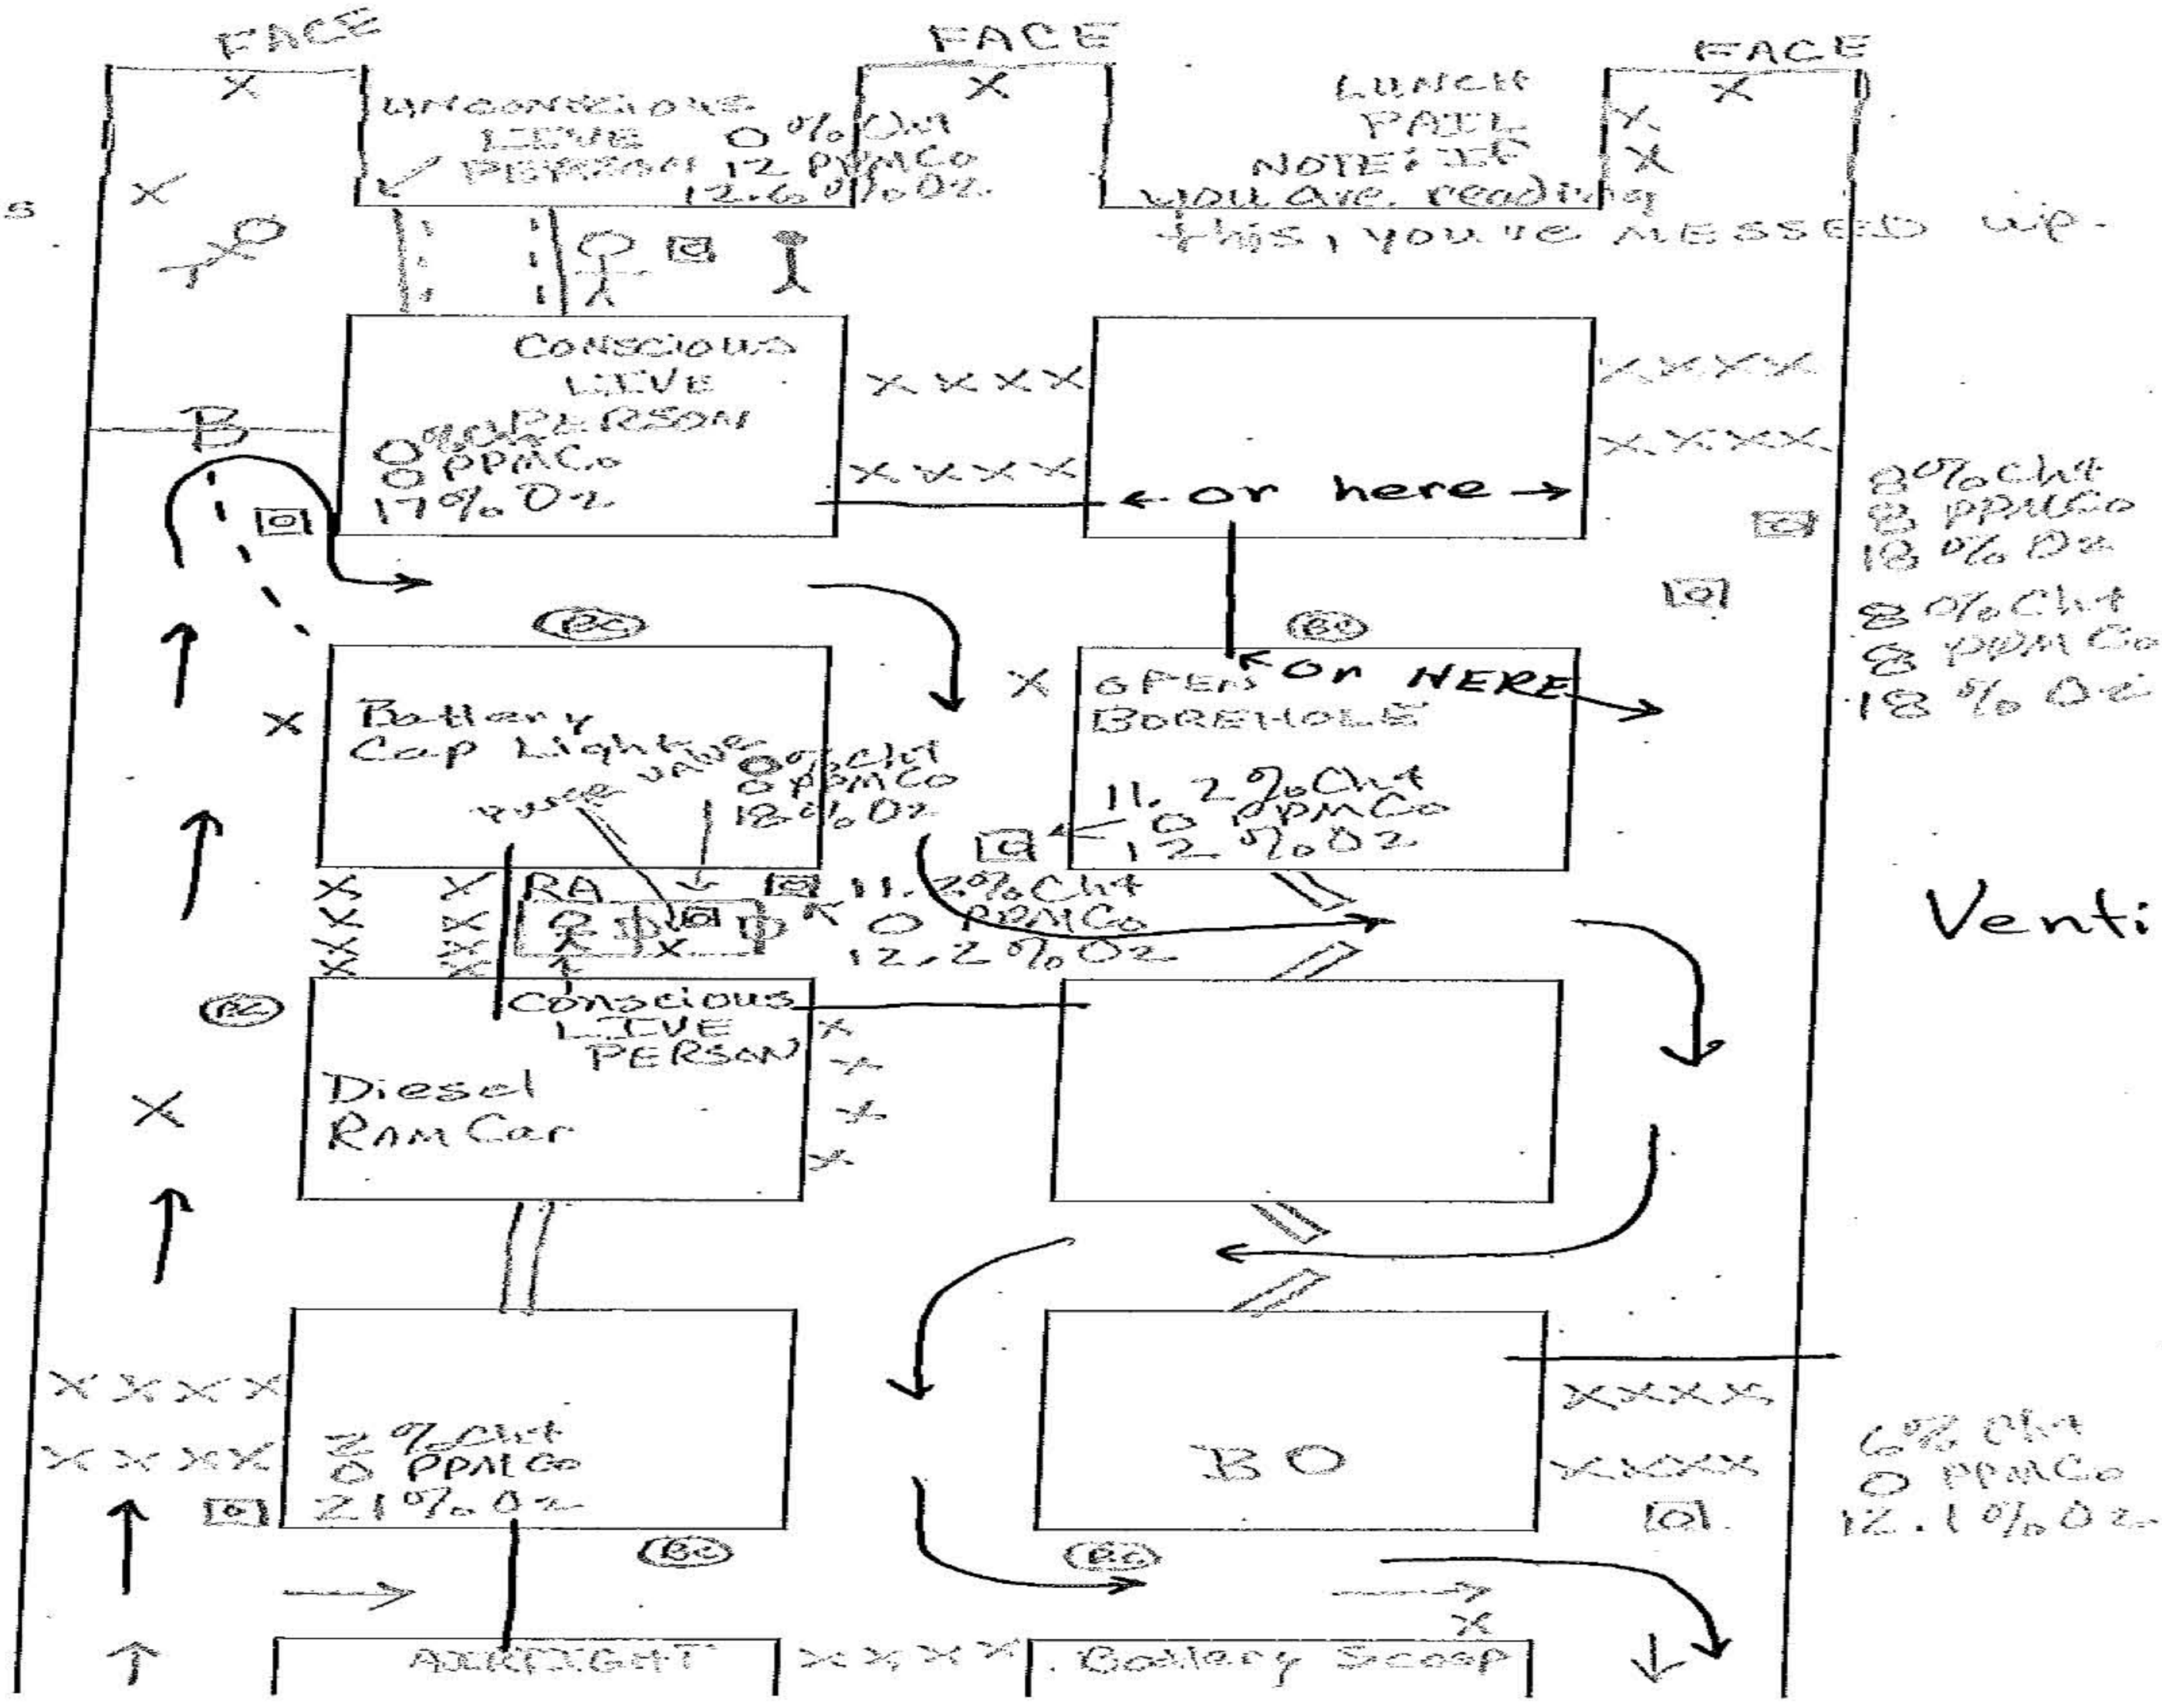 FACE
FACE
FACE
X
X
X
UNCONSCIOUS
LIEVE
PERSON
0 % Ch4
12 PPMCo
12.6 % O2
LUNCH
PAIL
NOTE: IF
you are reading
this, you're MESSED up.
X
X
X
s
CONSCIOUS
LIVE
PERSON
0 PPMCo
17% O2
X X X X
X X X X
X X X X
X X X X
B
← or here →
8 % Ch4
8 PPMCo
18 % O2
8 % Ch4
8 PPM Co
18 % O2
BC
BC
X
Battery
Cap Light
PURGE VALVE
0 % Ch4
0 PPMCo
18 % O2
X
OPEN
BOREHOLE
← or HERE
11.2 % Ch4
0 PPMCo
12 % O2
X X
X X
X X
X X
RA
X
11.2 % Ch4
0 PPMCo
12.2 % O2
Venti
BC
Conscious
LIVE
PERSON
Diesel
RAM Car
X
X
X
X
X
X X X X
X X X X
0 PPM Co
21 % O2
BO
X X X X
X X X X
6 % Ch4
0 PPMCo
12.1 % O2
BC
BC
X
AIRTIGHT
X X X X
Battery Scoop